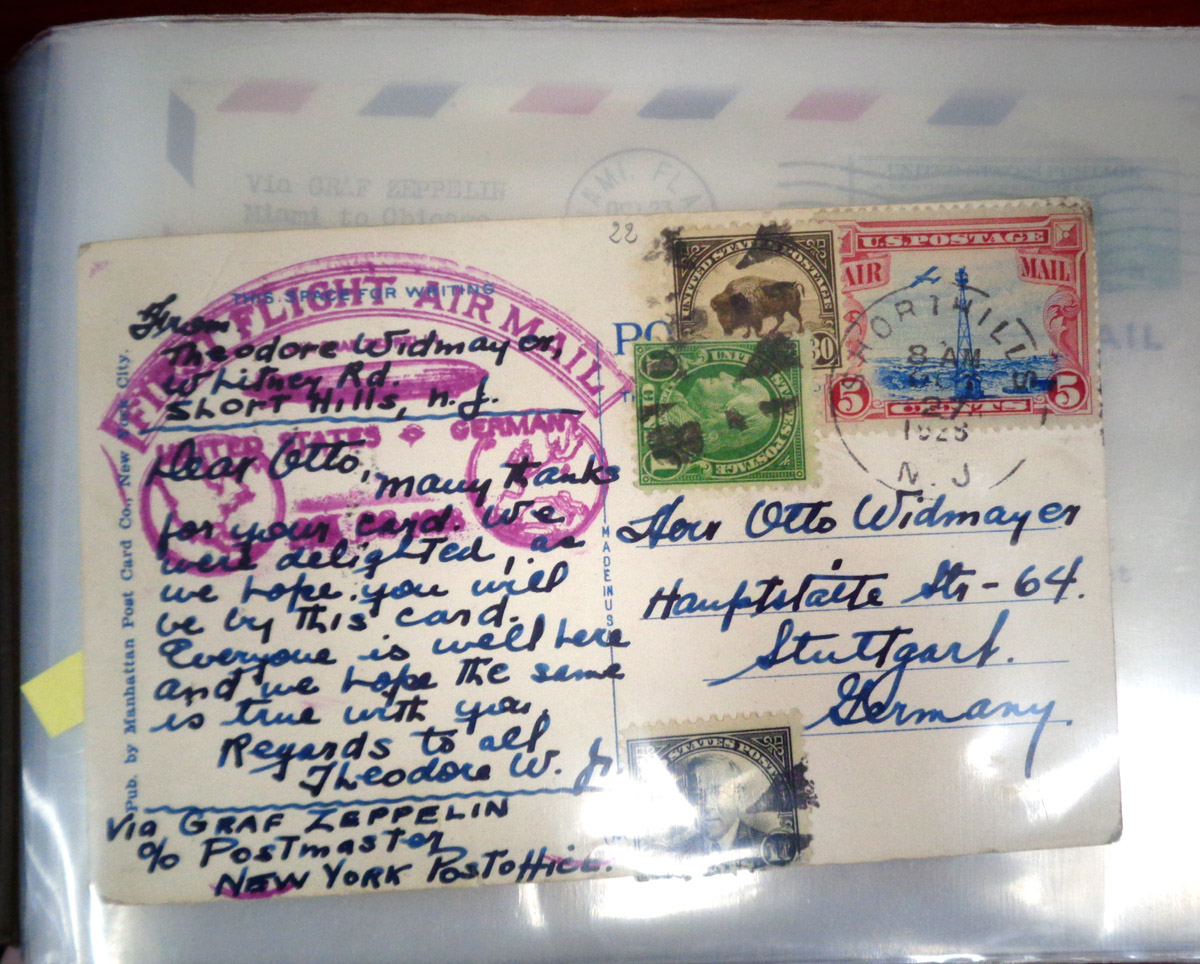 Via GRAF ZEPPELIN
Miami to Chicago
MIAMI, FLA
OCT 23
22
THIS SPACE FOR WRITING
FIRST FLIGHT AIR MAIL
UNITED STATES GERMANY
From
Theodore Widmayer,
Whitney Rd.
Short Hills, N.J.
Dear Otto,
many thanks
for your card. We
were delighted, as
we hope you will
be by this card.
Everyone is well here
and we hope the same
is true with you.
Regards to all
Theodore W. Jr.
Via GRAF ZEPPELIN
c/o Postmaster
NEW YORK Post Office.
Pub. by Manhattan Post Card Co., New York City.
MADE IN U S
PO
UNITED STATES POSTAGE
30
U.S. POSTAGE
AIR MAIL
5 5
CENTS
SHORT HILLS
8 AM
27
1928
N. J.
UNITED
STATES POSTAGE
Herr Otto Widmayer
Hauptstätte Str-64.
Stuttgart.
Germany.
STATES POST
AIL